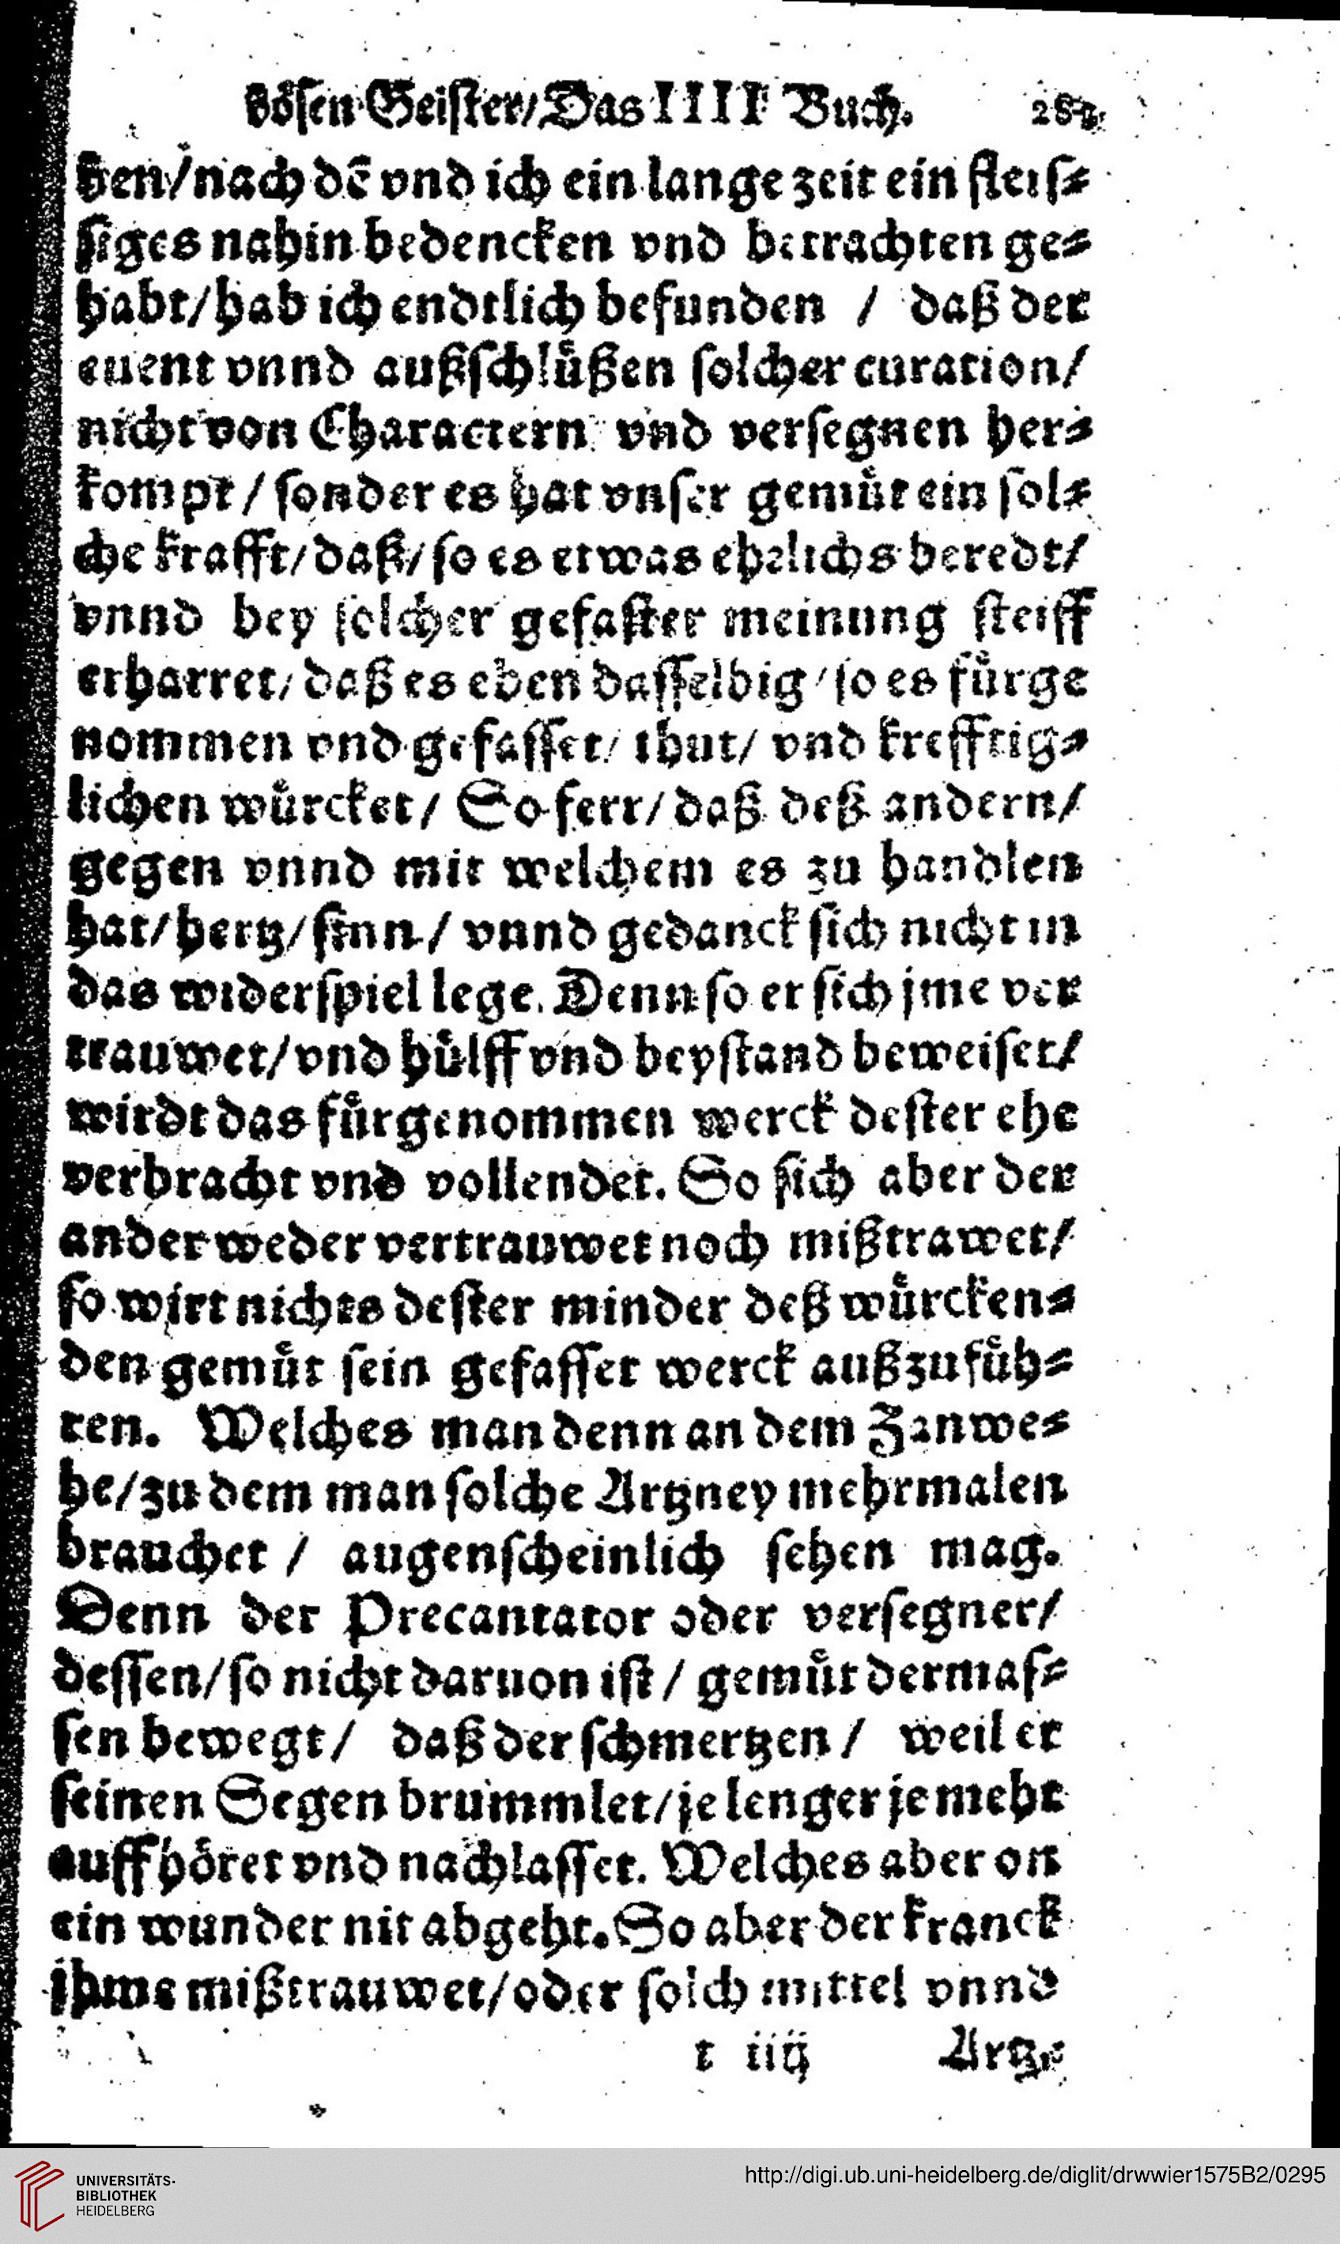 bösen Geister/Das IIII Buch.
ben/nach dẽ vnd ich ein lange zeit ein fleis⸗
siges nahin bedencken vnd betrachten ge⸗
habt/hab ich endtlich befunden / daß der
euent vnnd außschlůßen solcher curation/
nicht von Charactern vnd versegnen her⸗
kompt / sonder es hat vnser gemůt ein sol⸗
che krafft/daß/so es etwas ehrlichs beredt/
vnnd bey solcher gefaster meinung steiff
erharret/daß es eben dasselbig/so es fůrge
nommen vnd gefasset/ thut/ vnd krefftig⸗
lichen wůrcket/ So ferr/daß deß andern/
gegen vnnd mit welchem es zu handlen
hat/hertz/sinn / vnnd gedanck sich nicht in
das widerspiel lege. Denn so er sich jme ver
trauwet/vnd hůlff vnd beystand beweiset/
wirdt das fůrgenommen werck dester ehe
verbracht vnd vollendet. So sich aber der
ander weder vertrauwet noch mißtrawet/
so wirt nichts dester minder deß wůrcken⸗
den gemůt sein gefasset werck außzufůh⸗
ren. Welches man denn an dem Zanwe⸗
he/zu dem man solche Artzney mehrmalen
brauchet / augenscheinlich sehen mag.
Denn der Precantator oder versegner/
dessen/so nicht daruon ist / gemůt dermas⸗
sen bewegt/ daß der schmertzen / weil er
seinen Segen brummlet/je lenger je mehr
auffhöret vnd nachlasset. Welches aber on
ein wunder nit abgeht. So aber der kranck
ihme mißtrauwet/oder solch mittel vnnd
t iiij Artz⸗
UNIVERSITÄTS-
BIBLIOTHEK
HEIDELBERG
http://digi.ub.uni-heidelberg.de/diglit/drwwier1575B2/0295